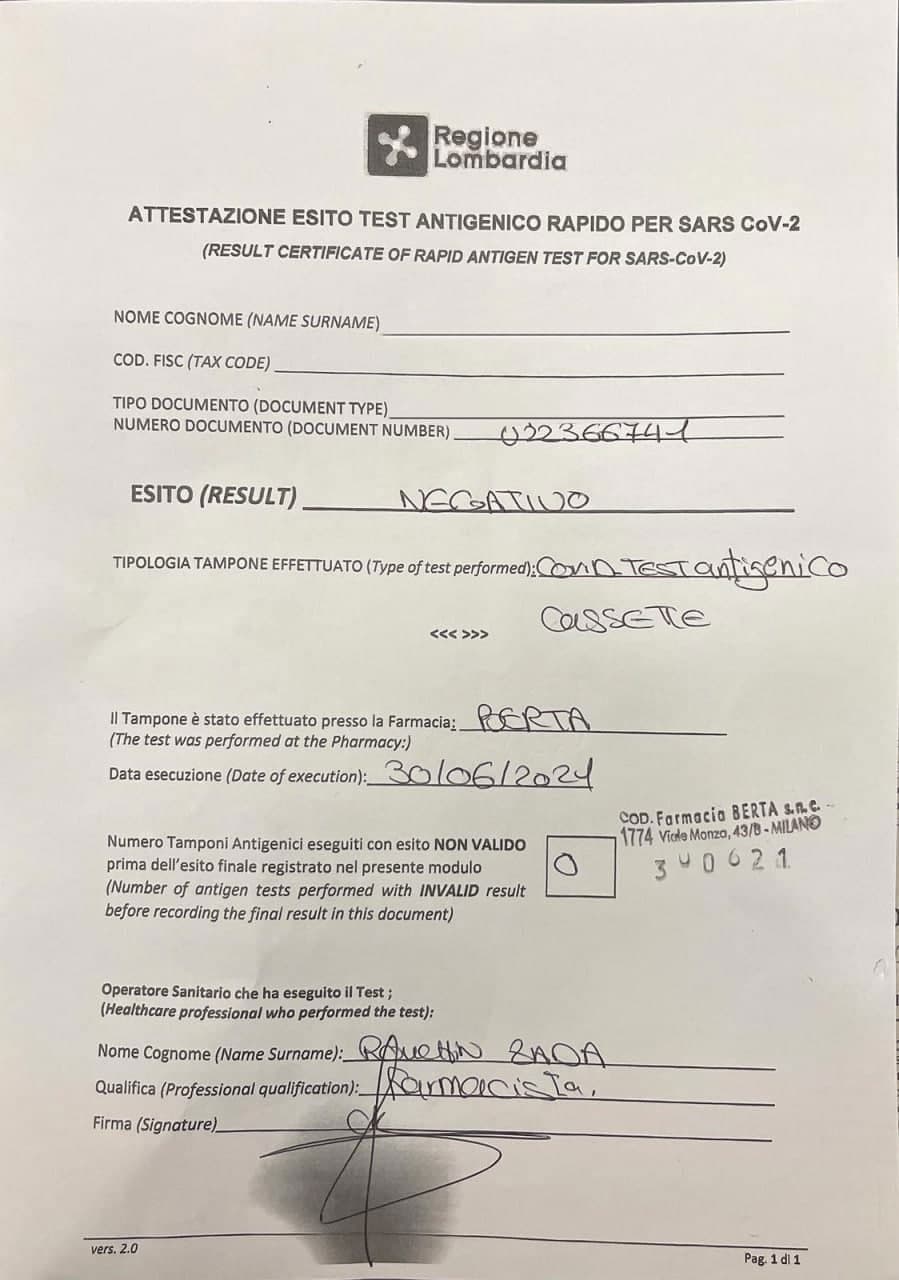 Regione
Lombardia
ATTESTAZIONE ESITO TEST ANTIGENICO RAPIDO PER SARS CoV-2
(RESULT CERTIFICATE OF RAPID ANTIGEN TEST FOR SARS-CoV-2)
NOME COGNOME (NAME SURNAME)
COD. FISC (TAX CODE)
TIPO DOCUMENTO (DOCUMENT TYPE)
NUMERO DOCUMENTO (DOCUMENT NUMBER) 022366741
ESITO (RESULT) NEGATIVO
TIPOLOGIA TAMPONE EFFETTUATO (Type of test performed): COVID TEST antigenico
CASSETTE
<<< >>>
Il Tampone è stato effettuato presso la Farmacia: BERTA
(The test was performed at the Pharmacy:)
Data esecuzione (Date of execution): 30/06/2021
COD. Farmacia BERTA s.n.c.
1774 Viale Monza, 43/B - MILANO
Numero Tamponi Antigenici eseguiti con esito NON VALIDO
prima dell'esito finale registrato nel presente modulo
(Number of antigen tests performed with INVALID result
before recording the final result in this document)
0
Operatore Sanitario che ha eseguito il Test ;
(Healthcare professional who performed the test):
Nome Cognome (Name Surname):
Qualifica (Professional qualification): Farmacista.
Firma (Signature)
vers. 2.0
Pag. 1 di 1